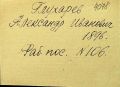 Глухарев 4098
Александр Иванович
1896.
Раб. пос. N106.